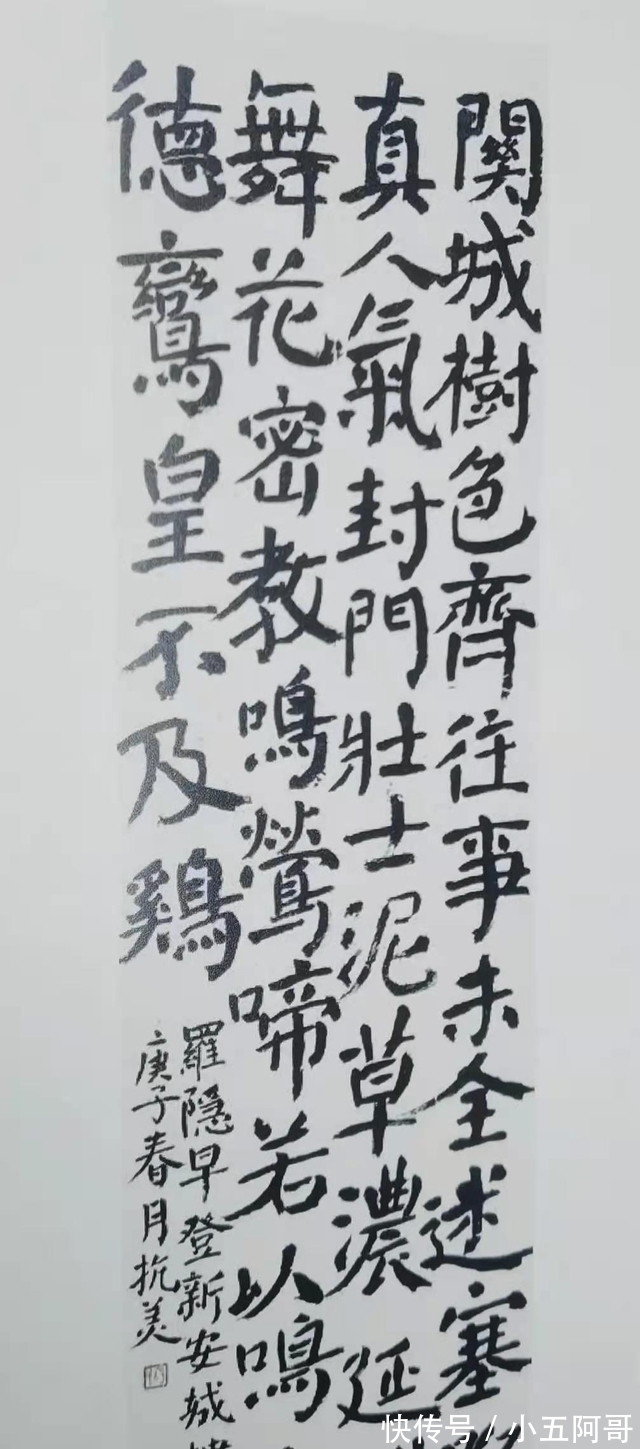 關城樹色齊往事未全迷塞
真人氣封門壯士泥草濃延
舞花密教鳴鶯啼若以鳴
德鸞皇不及鷄
羅隱早登新安城
庚子春月抗美
快传号/小五阿哥